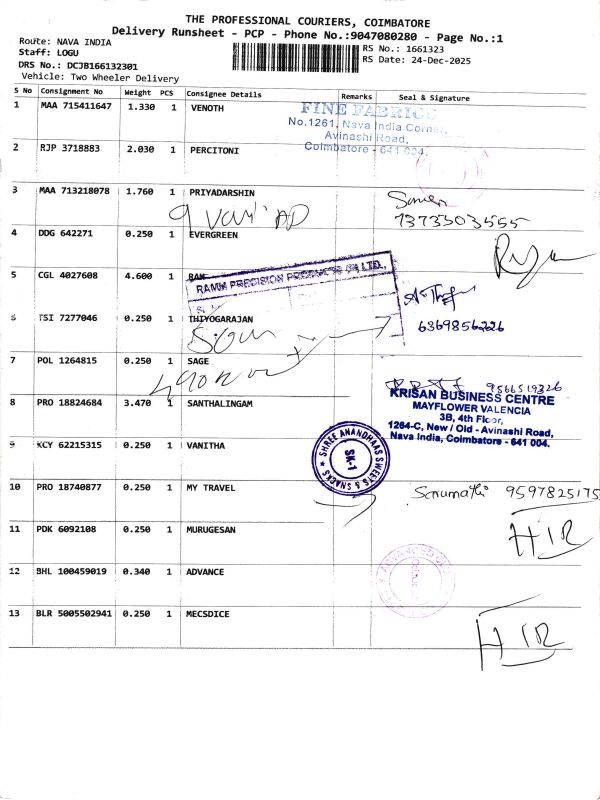 THE PROFESSIONAL COURIERS, COIMBATORE
Delivery Runsheet - PCP - Phone No.:9047080280 - Page No.:1
Route: NAVA INDIA
Staff: LOGU
DRS No.: DCJB166132301
Vehicle: Two Wheeler Delivery
RS No.: 1661323
RS Date: 24-Dec-2025
S No Consignment No Weight PCS Consignee Details Remarks Seal & Signature
1 MAA 715411647 1.330 1 VENOTH
FINE FABRICS
No.1261, Nava India Corner,
Avinashi Road,
Coimbatore - 641 004.
2 RJP 3718883 2.030 1 PERCITONI
3 MAA 713218078 1.760 1 PRIYADARSHIN
4 DDG 642271 0.250 1 EVERGREEN
5 CGL 4027608 4.600 1
RAMM PRECISION PRODUCTS (I) LTD.,
6 TSI 7277046 0.250 1 THIYOGARAJAN
6369856226
7 POL 1264815 0.250 1 SAGE
9566519326
8 PRO 18824684 3.470 1 SANTHALINGAM
KRISAN BUSINESS CENTRE
MAYFLOWER VALENCIA
3B, 4th Floor,
1264-C, New / Old - Avinashi Road,
Nava India, Coimbatore - 641 004.
9 KCY 62215315 0.250 1 VANITHA
SHREE ANANDHAAS SWEETS & SNACKS
SK-1
10 PRO 18740877 0.250 1 MY TRAVEL
9597825175
11 PDK 6092108 0.250 1 MURUGESAN
12 BHL 100459019 0.340 1 ADVANCE
13 BLR 5005502941 0.250 1 MECSDICE